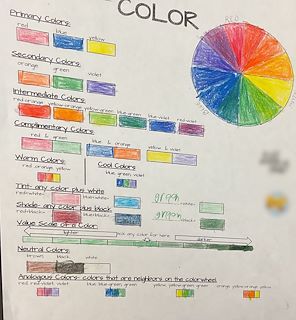 COLOR
RED
Primary Colors:
red blue yellow
Secondary Colors:
orange green violet
Intermediate Colors:
red orange yellow orange yellow green blue green blue violet red violet
Complimentary Colors:
red & green blue & orange yellow & violet
Warm Colors: Cool Colors
red, orange, yellow blue, green, violet
Tint- any color plus white
red+white= blue+white= green +white=
Shade- any color plus black
red+black= blue+black= green +black=
Value Scale of a Color:
lighter pick any color for here darker
Neutral Colors:
brown black white
Analogous Colors- colors that are neighbors on the colorwheel
red, red violet, violet blue, blue green, green yellow, yellow green, green orange, yellow orange, yellow